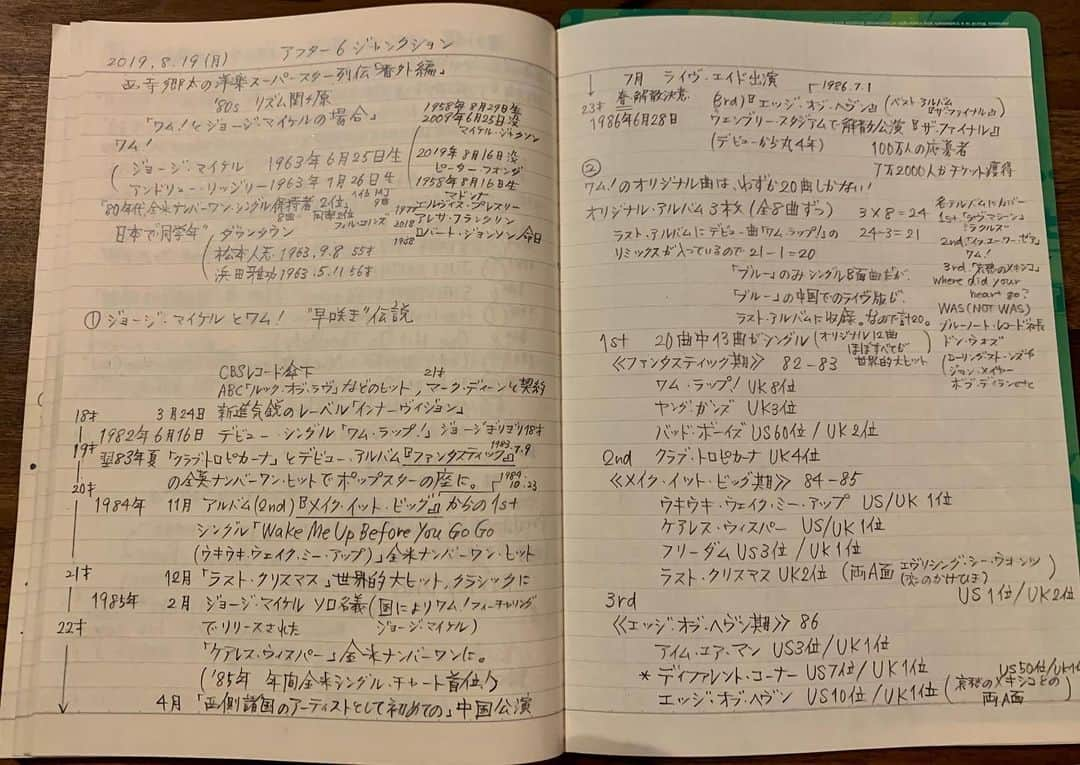 2019.8.19(月) アフター6ジャンクション
西寺郷太の洋楽スーパースター列伝『番外編』
'80s リズム関ヶ原
「ワム!とジョージ・マイケルの場合」
1958年8月29日生
2009年6月25日没
マイケル・ジャクソン
ワム!
ジョージ・マイケル 1963年6月25日生
アンドリュー・リッジリー 1963年1月26日生
2019年8月16日没
ピーター・フォンダ
1958年8月16日生
マドンナ
'80年代全米ナンバーワン・シングル保持者2位、
8曲 同率2位
MJ
9曲
フィル・コリンズ
1977 エルヴィス・プレスリー
2018 アレサ・フランクリン
1938 ロバート・ジョンソン 命日
日本で"同学年"
ダウンタウン
松本人志 1963.9.8 55才
浜田雅功 1963.5.11 56才
① ジョージ・マイケルとワム! "早咲き"伝説
CBSレコード傘下 21才
ABC「ルック・オブ・ラヴ」などのヒット、マーク・ディーンと契約
18才 3月24日 新進気鋭のレーベル「インナーヴィジョン」
1982年6月16日 デビュー・シングル「ワム・ラップ!」 ジョージギリギリ18才
19才 翌83年夏 「クラブトロピカーナ」とデビュー・アルバム『ファンタスティック』 1983.7.9
の全英ナンバーワン・ヒットでポップスターの座に。
20才 1984.10.23
1984年 11月 アルバム(2nd)『メイク・イット・ビッグ』からの1st
シングル「Wake Me Up Before You Go Go
(ウキウキ・ウェイク・ミー・アップ)」全米ナンバーワン・ヒット
21才 12月 「ラスト・クリスマス」世界的大ヒット、クラシックに
1985年 2月 ジョージ・マイケル ソロ名義(国によりワム!フィーチャリング
22才 でリリースされた ジョージ・マイケル)
「ケアレス・ウィスパー」全米ナンバーワンに。
('85年 年間全米シングル・チャート首位)
4月 「西側諸国のアーティストとして初めての」中国公演
7月 ライヴ・エイド出演
1986.7.1
23才 春・解散決意 (3rd)『エッジ・オブ・ヘヴン』(ベスト アルバム『ザ・ファイナル』)
1986年6月28日 ウェンブリー・スタジアムで解散公演『ザ・ファイナル』
(デビューから丸4年) 100万人の応募者
7万2000人がチケット獲得
②
ワム!のオリジナル曲は、わずか20曲しかない!
オリジナル・アルバム3枚(全8曲ずつ) 3×8=24
ラスト・アルバムにデビュー曲「ワム・ラップ!」の 24-3=21
リミックスが入っているので 21-1=20
「ブルー」のみシングルB面曲だが、
「ブルー」の中国でのライヴ版が、
ラスト・アルバムに収録。なので計20。
各アルバムにカバー
1st.「ラヴマシーン」
ミラクルズ
2nd.「イフ・ユー・ワー・ゼア」
3rd.「哀愁のメキシコ」
where did your
heart go?
WAS(NOT WAS)
ブルーノート・レコード社長
ドン・ウォズ
(ローリングストーンズや
ジョン・メイヤー
ボブ・ディランetc
1st 20曲中13曲がシングル(オリジナル12曲
ほぼすべてが
世界的大ヒット
≪ファンタスティック期≫ 82-83
ワム・ラップ! UK8位
ヤング・ガンズ UK3位
バッド・ボーイズ US60位/UK2位
2nd クラブ・トロピカーナ UK4位
≪メイク・イット・ビッグ期≫ 84-85
ウキウキ・ウェイク・ミー・アップ US/UK 1位
ケアレス・ウィスパー US/UK1位
フリーダム US3位/UK1位
ラスト・クリスマス UK2位 (両A面 エヴリシング・シー・ウォンツ
(恋のかけひき) )
US1位/UK2位
3rd
≪エッジ・オブ・ヘヴン期≫ 86
アイム・ユア・マン US3位/UK1位
*ディファレント・コーナー US7位/UK1位
US50位/UK1位
エッジ・オブ・ヘヴン US10位/UK1位(哀愁のメキシコとの
両A面)